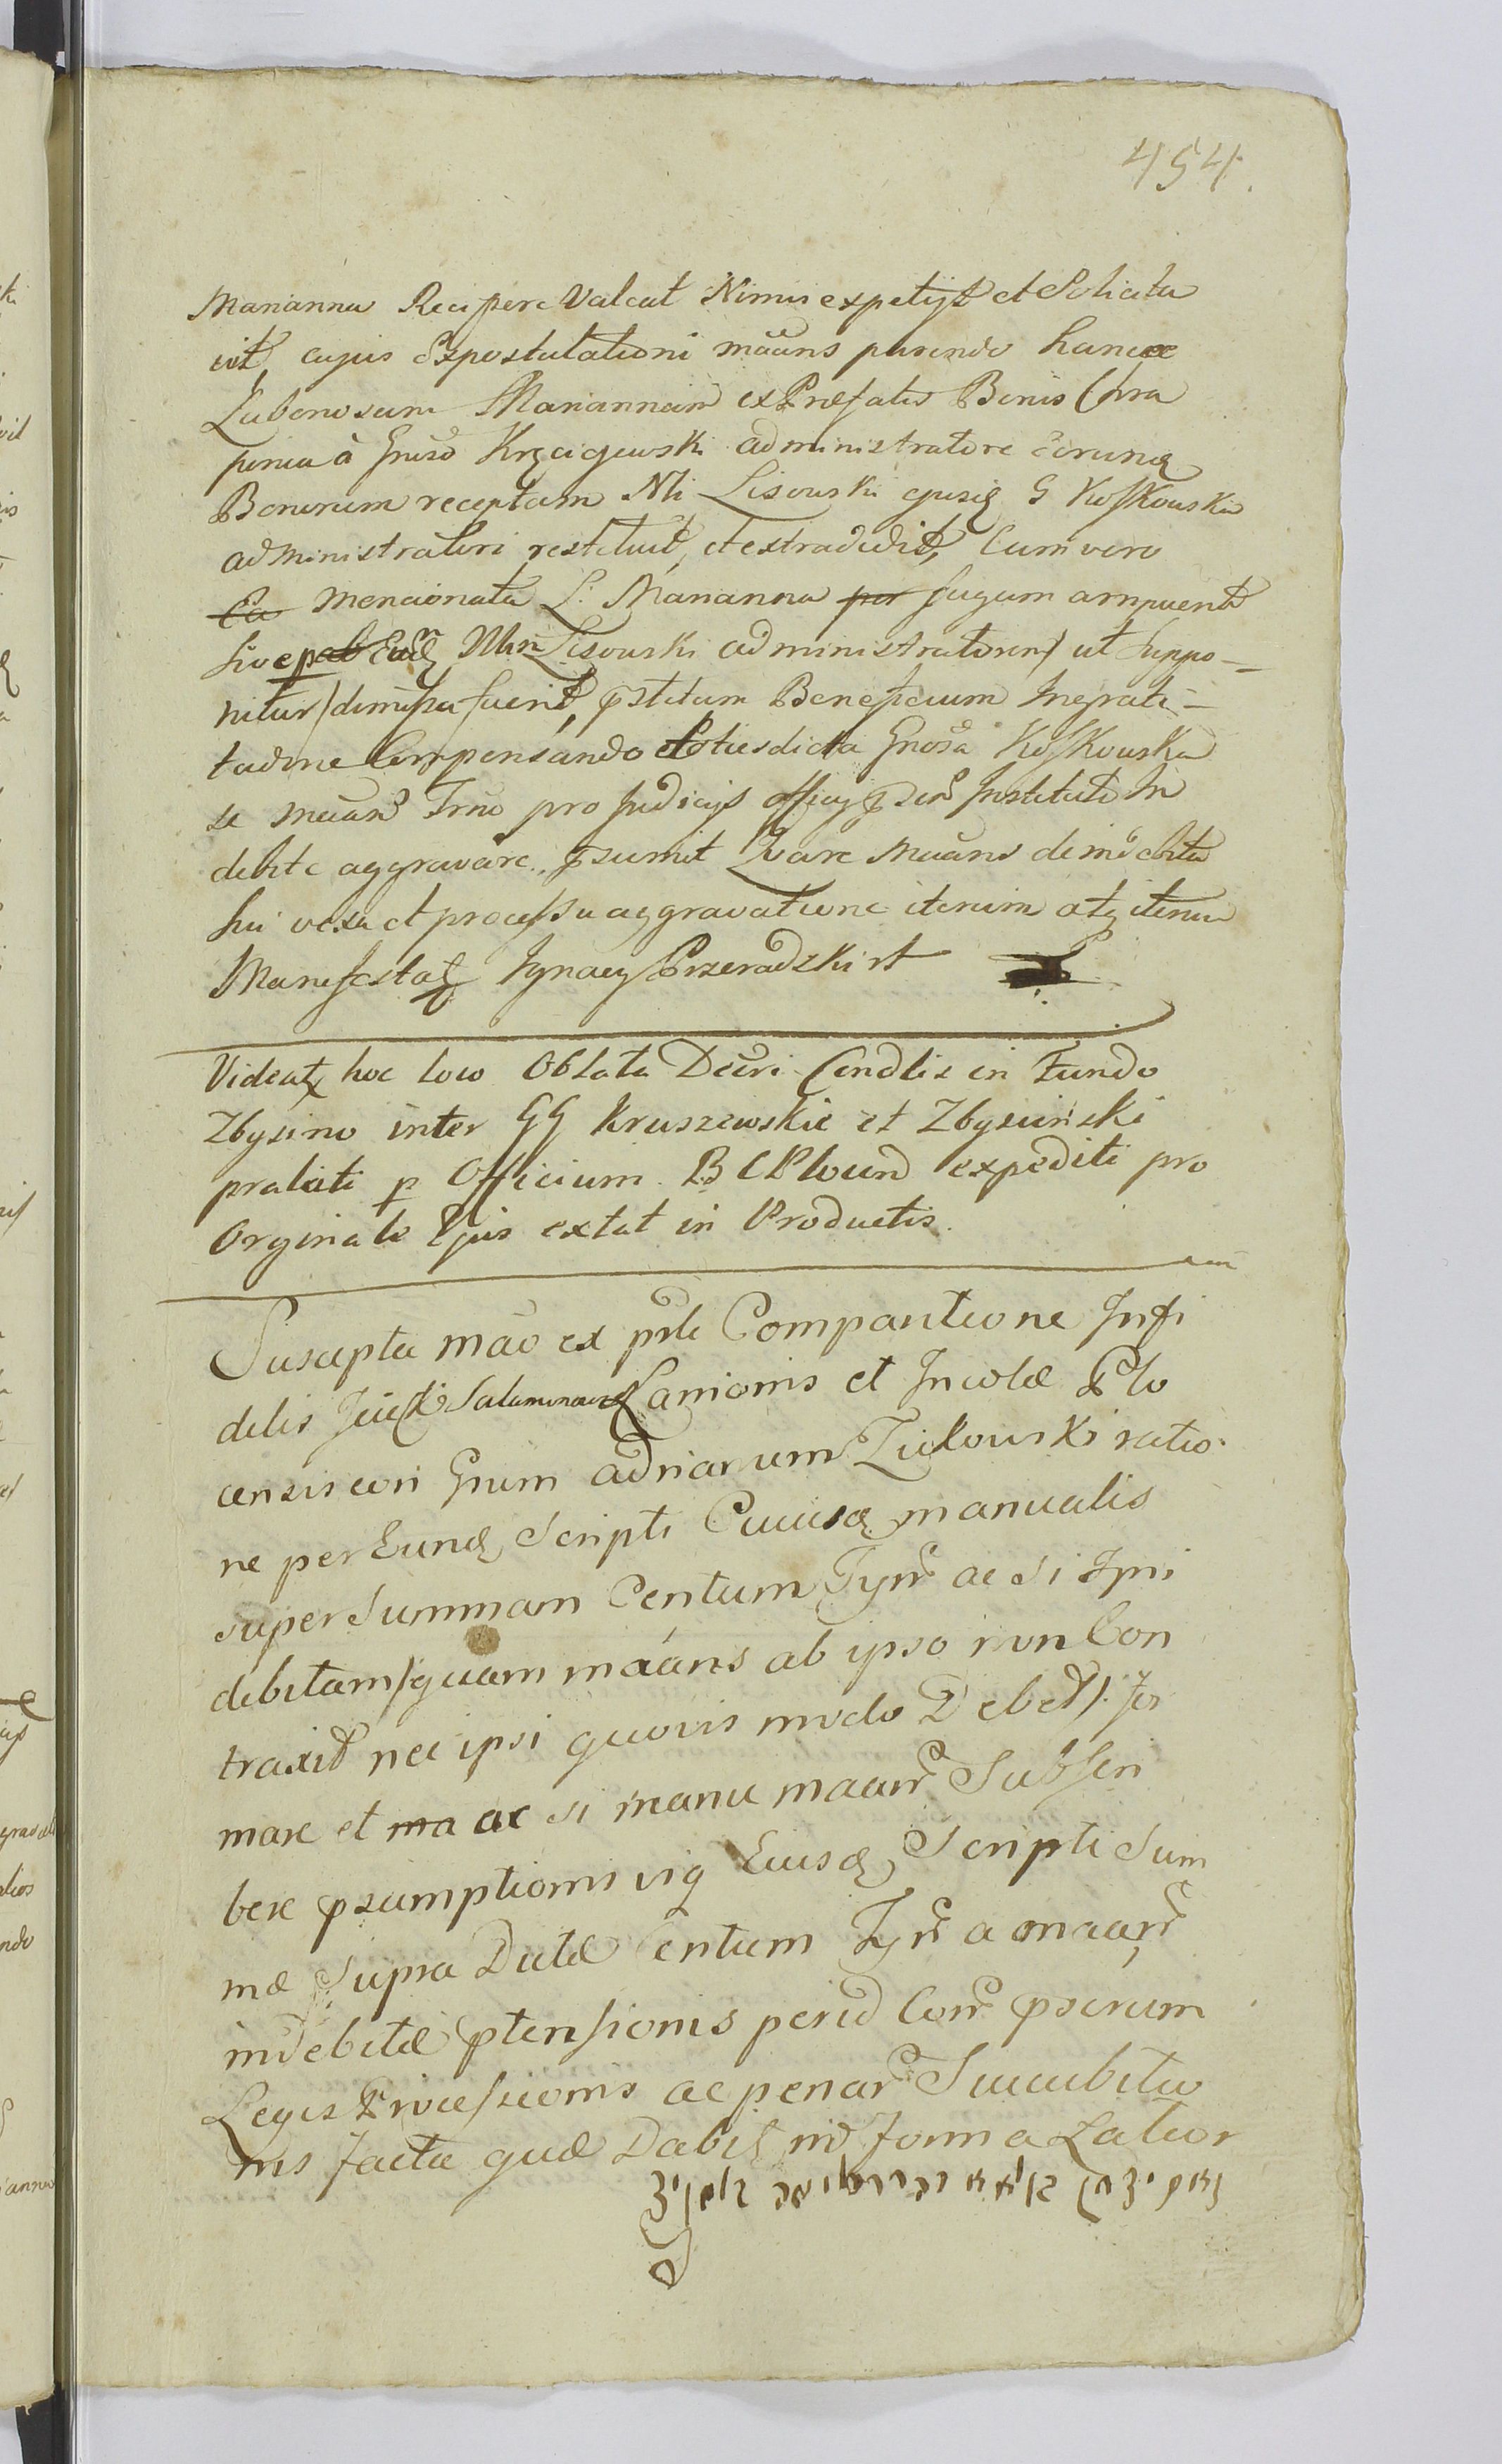 454.
Marianna Recipere Valeat Nimis expetijt et Solicita
vit, cujus Expostulationi mãans parendo hance
Labonosam Mariannam ex Præfatis Bonis Chra
ponia à Gnoso Krzcigewski administratore eorund
Bonorum receptam Nli Lisowski ejusd G Koſkowskia
administratori restituit, et extradidit, Cum vero
Ea mencionata L: Marianna per fugam arripuerit
sive p ab Eund Nlm Lisowski administratorem / ut Suppo-
nitur / dimiſsa fuerit, pstitum Beneficium Ingrati-
tudine Compensando totiesdicta Gnosa Koſkowska
se maan Trno pro Judicijs officij Institute In
debite aggravare psumit Quare Maans de indebita
sui vexa et proceſsu aggravatione iterum atq iterum
Manifestat Ignacy Przeradzki
Videat hoc loco Oblata Decri Condlis in Fundo
Zbysino inter GG Kruszewskie et Zbysinski
prolati p Officium B C Plocen expediti pro
Orginale Ejus extat in Productis.
Suscepta mão ex prte Comparitione Infi
delis Jude Salamonowicz Lanionis et Incolæ Plo
censis con Gnum Adrianum Zukowski ratio
ne per Eund Scripti Cuiusd manualis
super Summam Centum Tyn ac si Ipsi
debitam / quam mãans ab ipso non Con
traxit nec ipsi quovis modo Debet /: for
mare et ma ac si manu maan Subscri
bere psumptionis vig Eiusd Scripti Sum
mæ Supra Datæ Centum Tyn a maan
indebitæ ptensionis perid Con psorum
Legis Proceſsionis ac penar Succubitio
nis facta quæ Dabit in Forma Latior